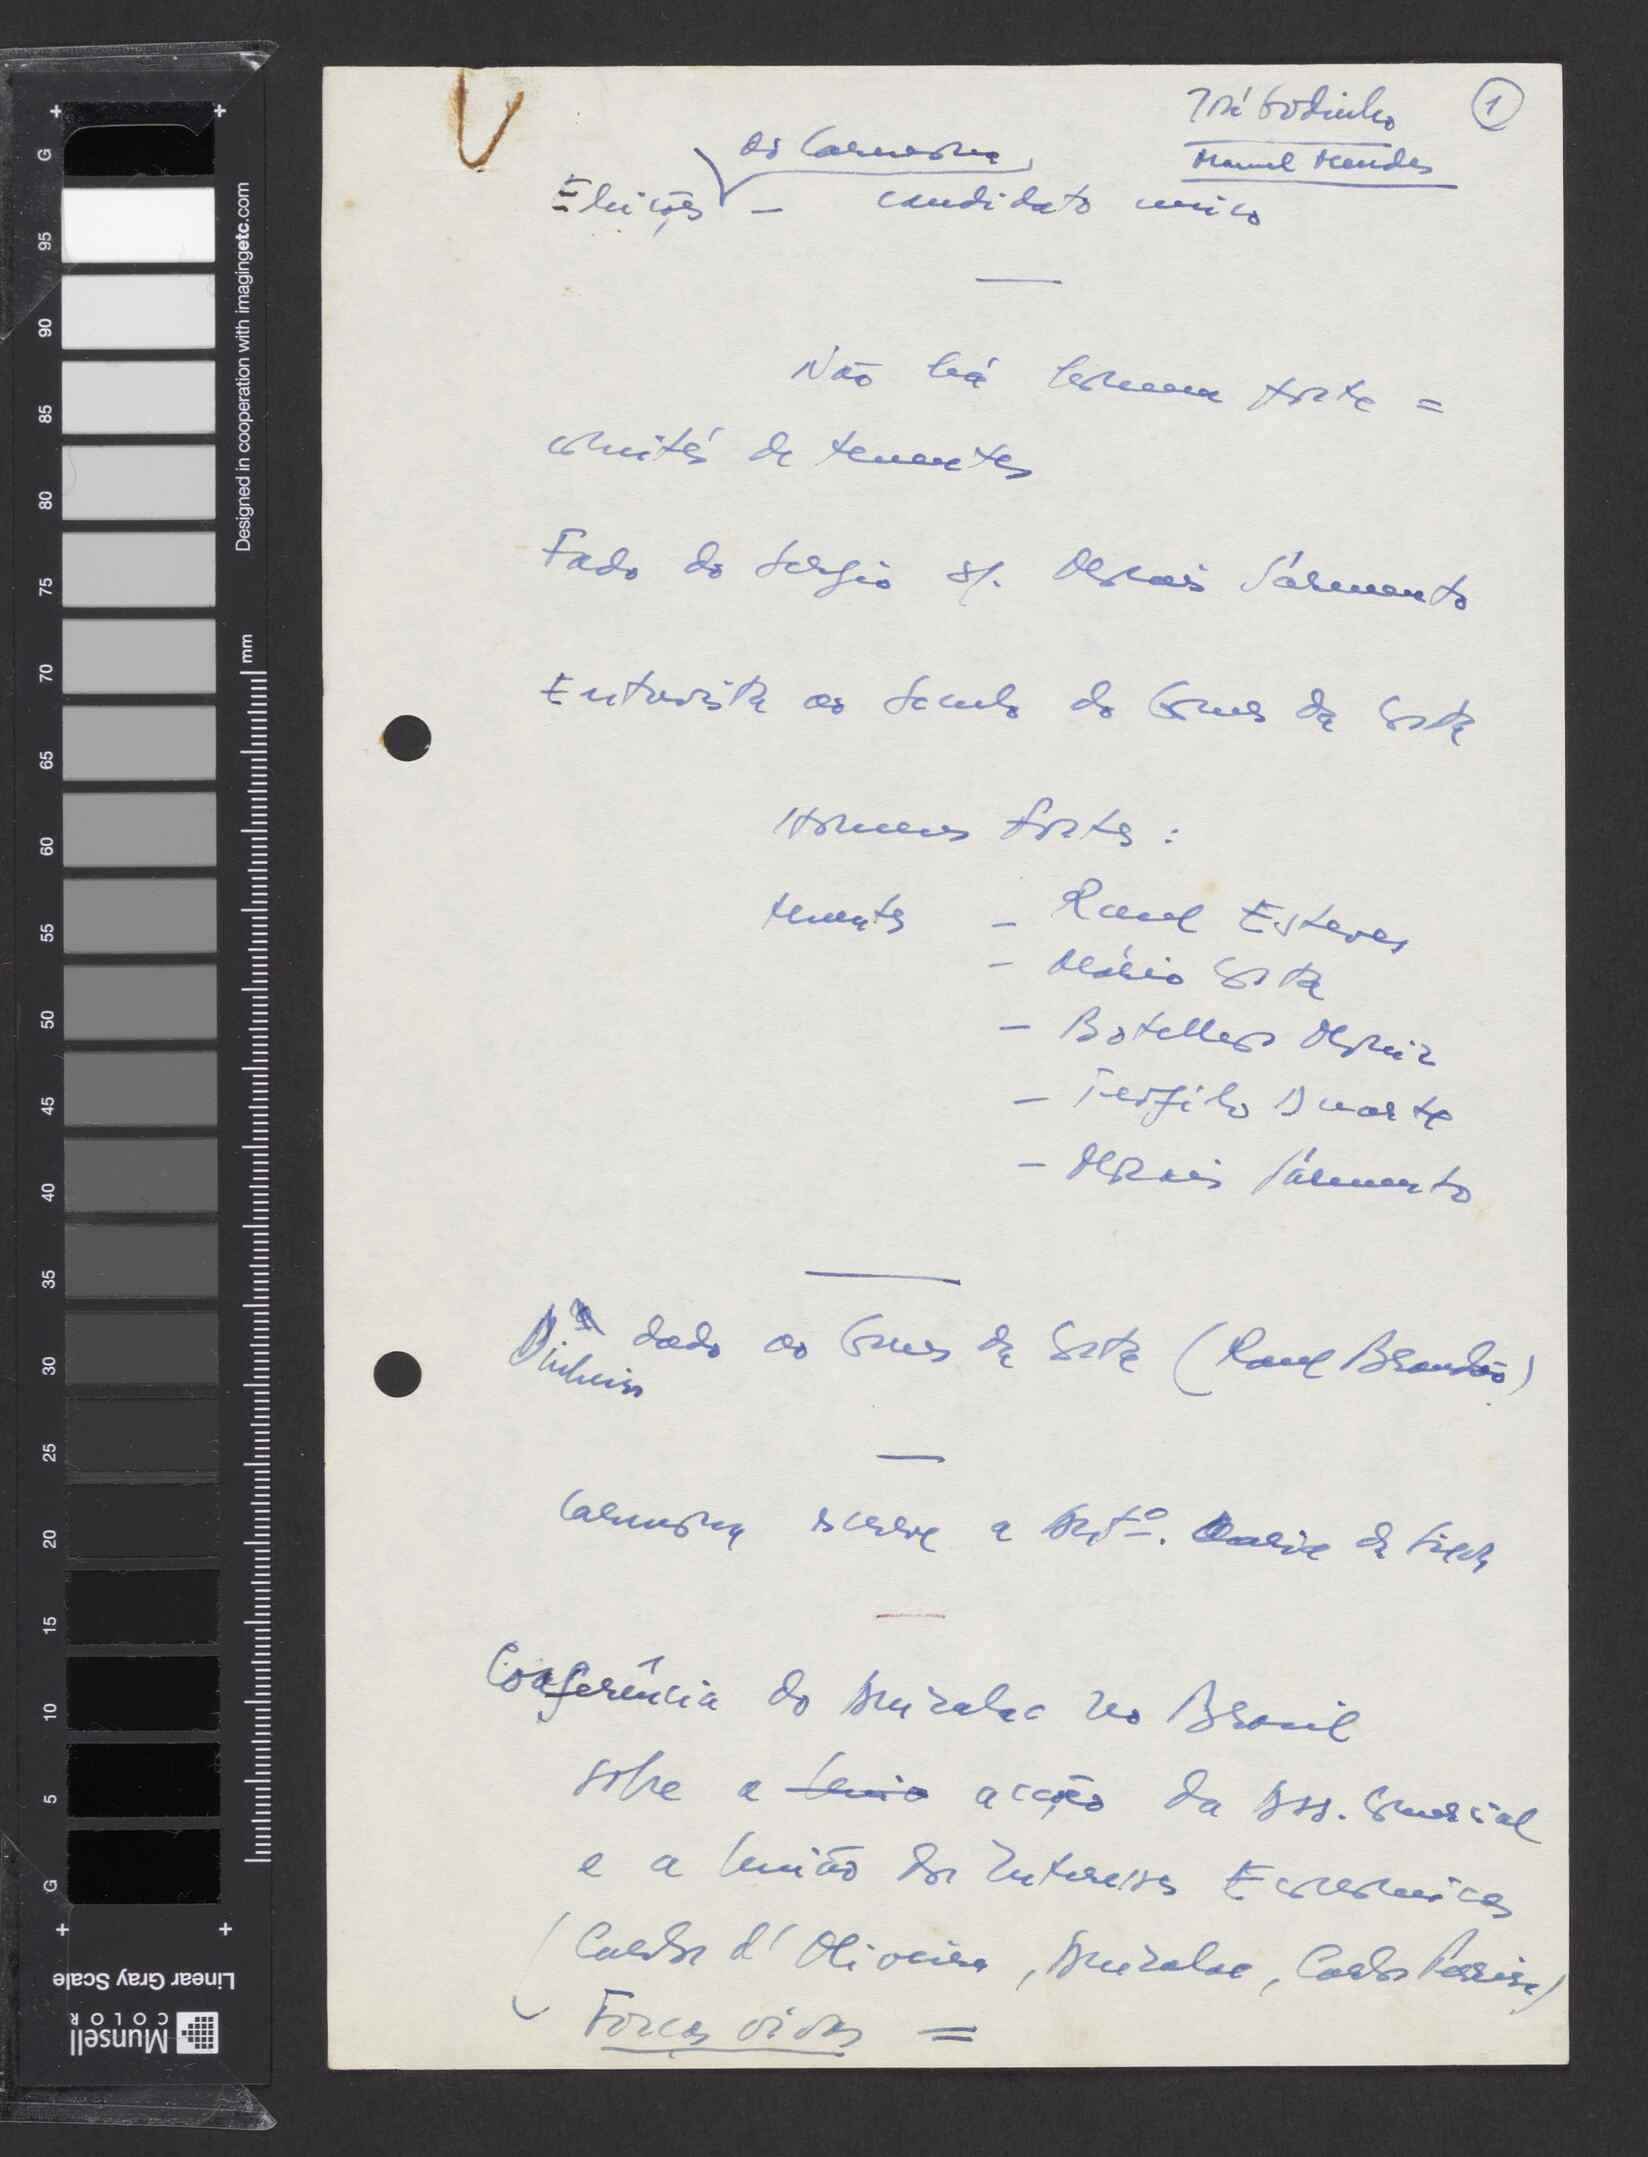 José Godinho
1
Manuel Mendes
do Carmona
Eleições – candidato unico
Não há homem forte =
comités de tenentes
Fado do Sergio s/. Morais Sarmento
Entrevista ao Seculo do Gomes da Costa
Homens fortes :
tenentes – Raul Esteves
– Mário Costa
– Botelho Moniz
– Teofilo Duarte
– Morais Sarmento
Dinheiro dado ao Gomes da Costa (Raul Brandão)
Carmona escreve a Antº. Maria da Silva
Conferência do Amzalac no Brasil
sobre a acção da Ass. Comercial
e a União dos Interesses Económicos
( d'Oliveira, Amzalac, Carlos Pereira)
Forças vivas =
G
95
90
85
80
75
70
65
60
55
50
45
40
35
30
25
20
15
10
5
G
mm
Designed in cooperation with imagingetc.com
Linear Gray Scale
Munsell
COLOR